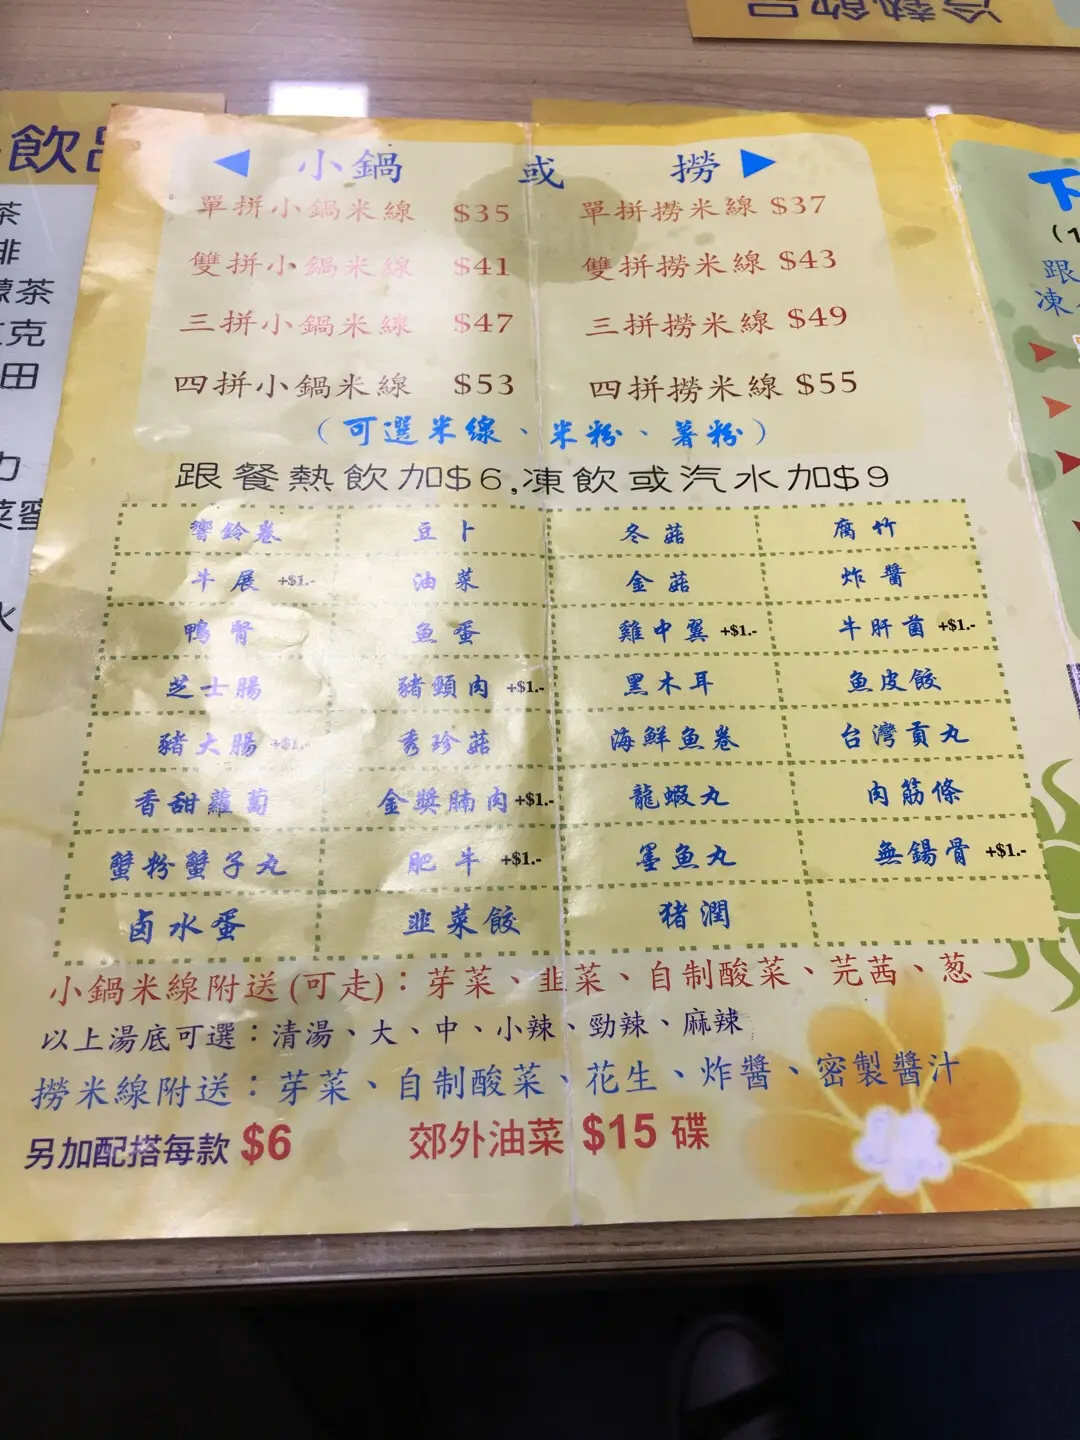 冷熱飲品
飲品
茶
啡
檬茶
克
田
力
菜蜜
水
小鍋 或 撈
單拼小鍋米線 $35 單拼撈米線 $37
雙拼小鍋米線 $41 雙拼撈米線 $43
三拼小鍋米線 $47 三拼撈米線 $49
四拼小鍋米線 $53 四拼撈米線 $55
(可選米線、米粉、薯粉)
跟餐熱飲加$6,凍飲或汽水加$9
響鈴卷 豆卜 冬菇 腐竹
牛展 +$1.- 油菜 金菇 炸醬
鴨腎 魚蛋 雞中翼 +$1.- 牛肝菌 +$1.-
芝士腸 豬頸肉 +$1.- 黑木耳 魚皮餃
豬大腸 +$1.- 秀珍菇 海鮮魚卷 台灣貢丸
香甜蘿蔔 金獎腩肉 +$1.- 龍蝦丸 肉筋條
蟹粉蟹子丸 肥牛 +$1.- 墨魚丸 無鍚骨 +$1.-
卤水蛋 韭菜餃 猪潤
小鍋米線附送(可走)：芽菜、韭菜、自制酸菜、芫茜、葱
以上湯底可選：清湯、大、中、小辣、勁辣、麻辣
撈米線附送：芽菜、自制酸菜、花生、炸醬、密製醬汁
另加配搭每款 $6 郊外油菜 $15 碟
下
(1
跟
凍